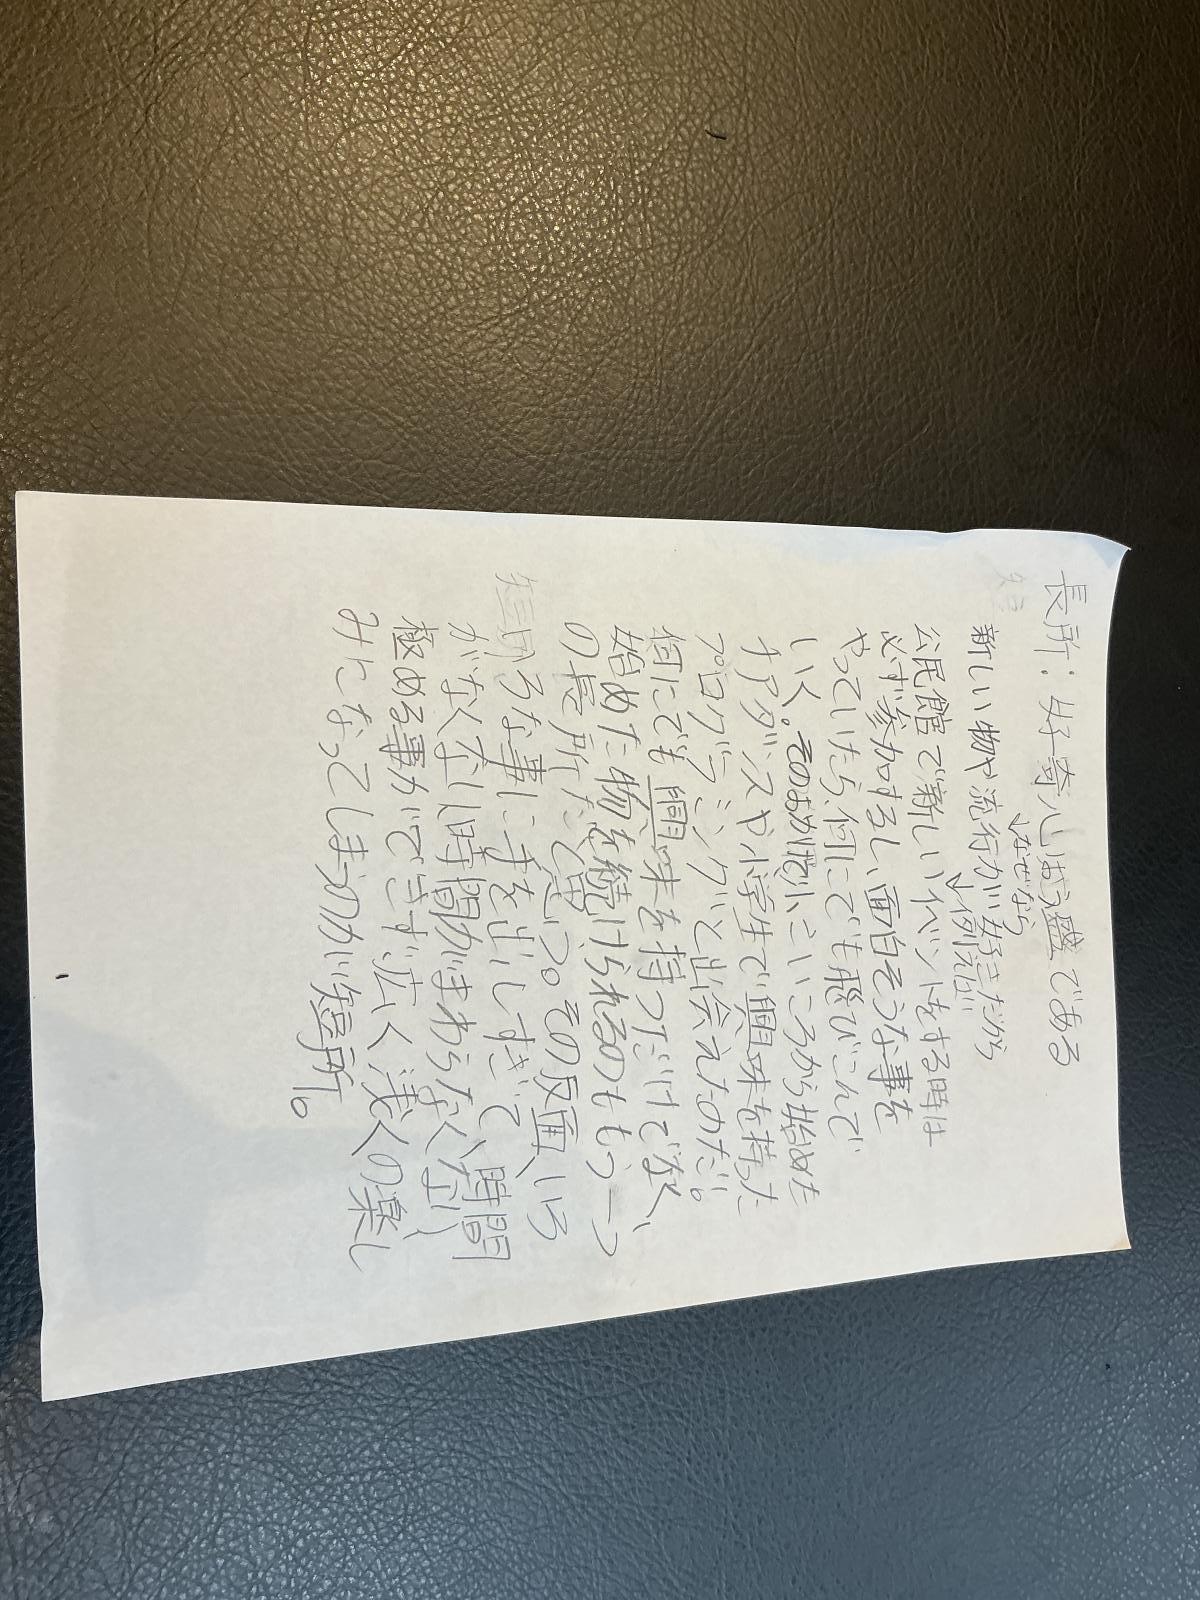 長所:好奇心おう盛である
↓なぜなら
新しい物や流行が好きだから
↓例えば
公民館で新しいイベントをする時は
必ず参加するし、面白そうな事を
やっていたら何にでも飛びこんで
いく。そのおかげで小さいころから始めた
チアダンスや小学生で興味を持った
プログラミングと出会えたのだ。
何にでも興味を持つだけでなく、
始めた物を続けられるのももう一つ
の長所だと思う。その反面、いろ
いろな事に手を出しすぎて、時間
がなくなり時間がまわらなくなり、
極める事ができず広く浅くの楽し
みになってしまうのが短所。